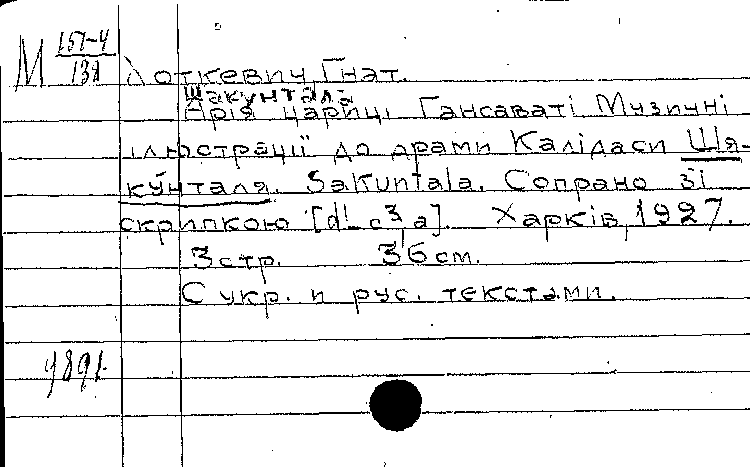 М 157-4
138
Хоткевич, Гнат.
Шакунтала
Арія цариці Гансаваті Музичні
ілюстрації до драми Калідаси Ша-
кунталя. Sakuntala. Сопрано зі
скрипкою [d¹-c³a]. Харків, 1927.
3 стр. 36 см.
С укр. и рус. текстами.
9891